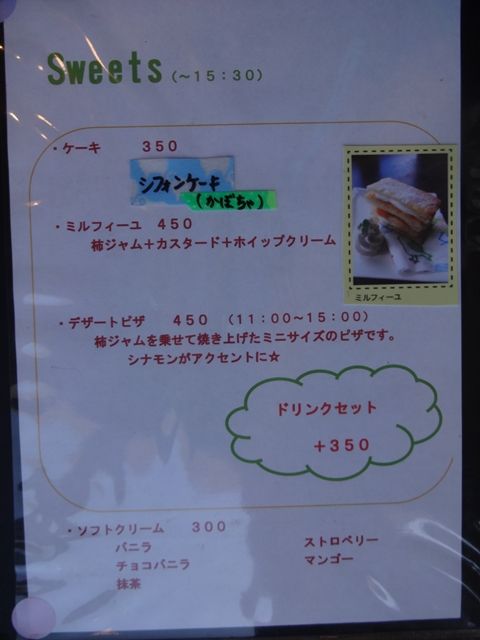 Sweets (～15:30)
・ケーキ 350
シフォンケーキ
(かぼちゃ)
・ミルフィーユ 450
柿ジャム＋カスタード＋ホイップクリーム
ミルフィーユ
・デザートピザ 450 (11:00～15:00)
柿ジャムを乗せて焼き上げたミニサイズのピザです。
シナモンがアクセントに☆
ドリンクセット
＋350
・ソフトクリーム 300
バニラ
チョコバニラ
抹茶
ストロベリー
マンゴー